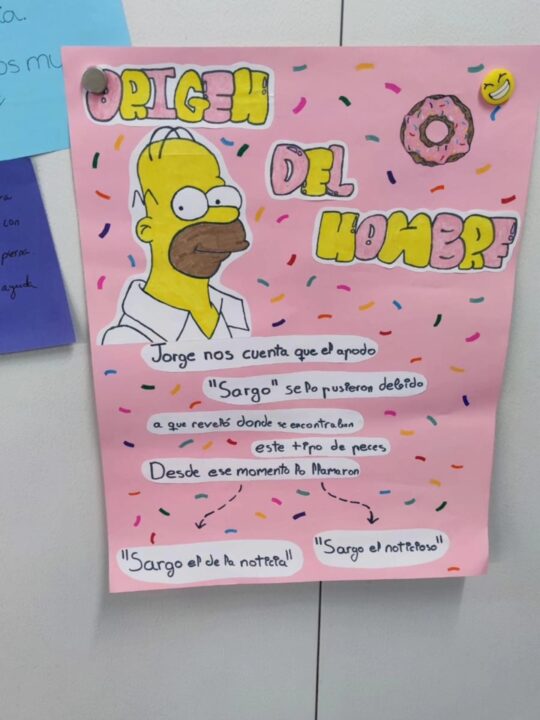 ia.
os mu
con
pierna.
ayuda
ORIGEN
DEL
HOMBRE
Jorge nos cuenta que el apodo
"Sargo" se lo pusieron debido
a que reveló donde se encontraban
este tipo de peces
Desde ese momento lo llamaron
"Sargo el de la noticia"
"Sargo el noticioso"